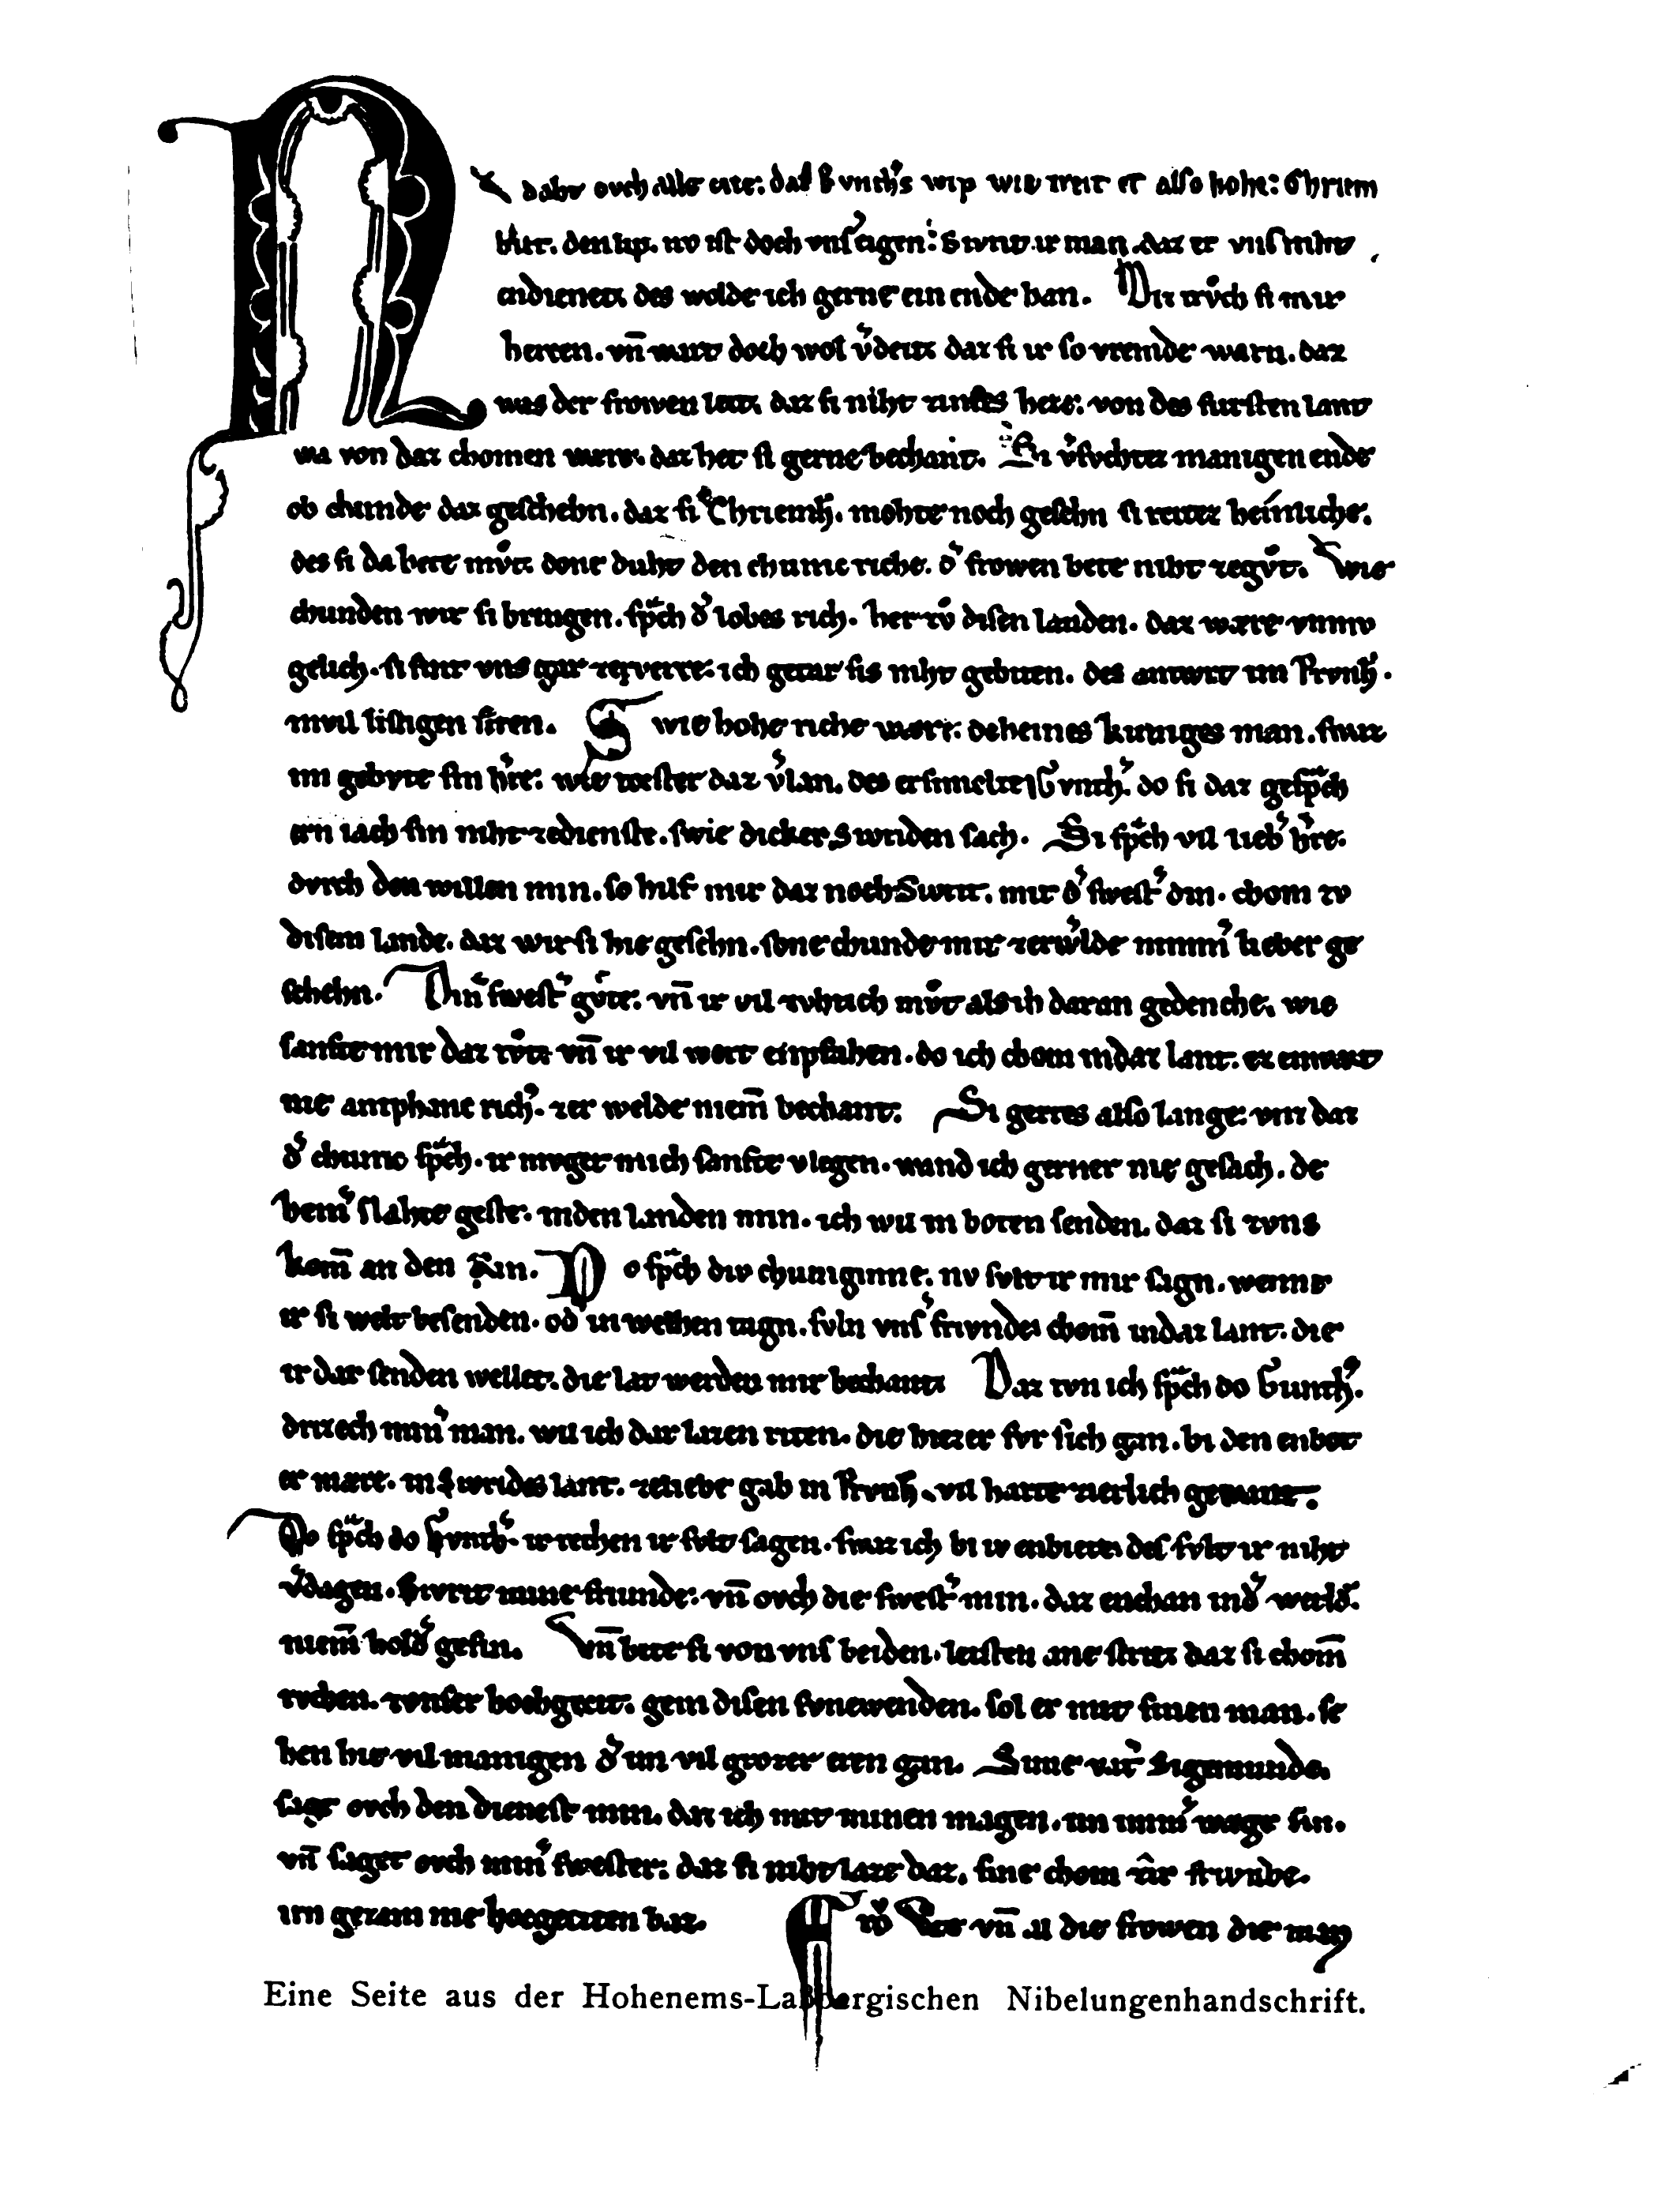 N v daht ovch alle cite: daz Gvnthͤs wip wie treit et also hohe: Chriem
hilt. den lip. nv ist doch vnsͤ eigen: Sivrit ir man. daz er vns niht
endienet. des wolde ich gerne ein ende han. Diz trvͦch si in ir
herzen. vn̄ wart doch wol vͤdeit. daz si ir so vremde warn. daz
was der frowen leit. daz si niht zinses hete: von des fursten lant
wa von daz chomen were. daz het si gerne bechant. Si vͤsvchtez manigen ende
ob chunde daz geschehn. daz si Chriemh̄. mohte noch gesehn si reitez heinliche.
des si da hete mvͦt. done duht den chunic riche. dͤ frowen bete niht zegvͦt. Wie
chunden wir si bringen. sp͛ch dͤ lobes rich. her zvͦ disen landen. daz wære vnmv
gelich. si sint vns gar zeverre: ich getar sis niht gebiten. des antwrt im Prvnh̄.
in vil listigen siten. Swie hohe riche wære: deheines kuniges man. swaz
im gebvte sin hͤre: wie wester daz vͤlan. des ersmielte Gvnthͤ. do si daz gesp͛ch
ern iach sin niht zedienste. swie dicker Sivriden sach. Si sp͛ch vil liebͤ hͤre.
dvrch den willen min. so hilf mir daz noch Sivrit. mit dͤ swestͤ din. chom zv
disem lande. daz wir si hie gesehn. sone chunde mir zerwͤlde nimmͤ lieber ge
schehn. Dinͤ swestͤ gvͤte: vn̄ ir vil zvhtich mvͦt als ih daran gedenche. wie
sanfte mir daz tvͦt vn̄ ir vil wert enpfahen. do ich chom in daz lant. ez enwart
nie antphanc richͤ. zer welde niem̄ bechant. Si gertes also lange: vnz daz
dͤ chunic sp͛ch. ir mvget mich sanfte vlegen. wand ich gerner nie gesach. de
heinͤ slahte geste. in den landen min. ich wil in boten senden. daz si zvns
kom̄ an den Rin. Do sp͛ch div chuniginne. nv svlt ir mir sagn. wenne
ir si welt besenden. odͤ in welhen tagn. svln vnsͤ frivnde chom̄ in daz lant. die
ir dar senden wellet. die lat werden mir bechant Daz tvn ich sp͛ch do Gunthͤ.
drizech minͤ man. wil ich dar lazen riten. die hiezer fvr sich gan. bi den enbot
er mære. in Sivrides lant. zeliebe gab in Prvnh̄. vil harte zierlich gewant.
Do sp͛ch do Gvnthͤ. ir rechen ir svlt sagen. swaz ich bi iv enbiete. des svlt ir niht
vͤdagen. Sivrit mine friunde: vn̄ ovch die swestͤ min. daz enchan in dͤ werldͤ.
niem̄ holdͤ gesin. Vn̄ bete si von vns beiden. leisten ane strit. daz si chom̄
rvchen. zvnser hochgecit. gein disen svnewenden. sol er mit sinen man. se
hen hie vil manigen dͤ im vil grozer eren gan. Sime vatͤ Sigemunde.
saget ovch den dienest min. daz ich mit minen magen. im immͤ wæge sin.
vn̄ saget ovch minͤ swester: daz si niht laze daz. sine chom zir frivnde.
irn gezam nie hochgeciten baz. Frov Vte vn̄ al die frowen die man
Eine Seite aus der Hohenems-Laßbergischen Nibelungenhandschrift.